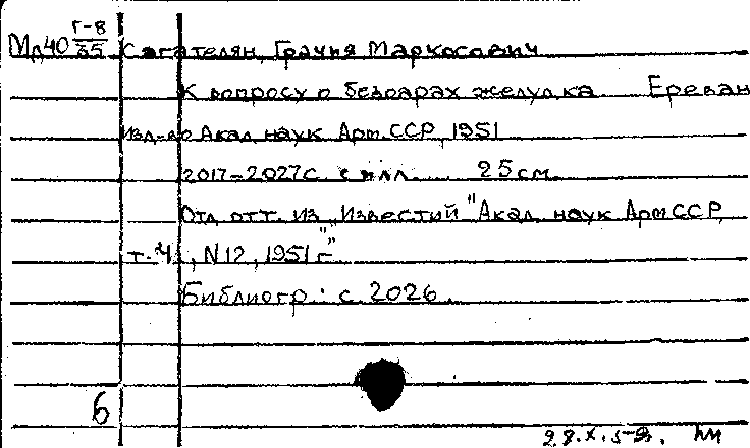 Мл40 Г-8/35 Сагателян, Грачия Маркосович
К вопросу о безоарах желудка Ереван
Изд-во Акад. наук Арм.ССР, 1951
2017-2027с. с илл. 25см.
Отд. отт. из "Известий "Акад. наук Арм.ССР,
т.4, N12, 1951г."
Библиогр: с. 2026.
6
28.X.